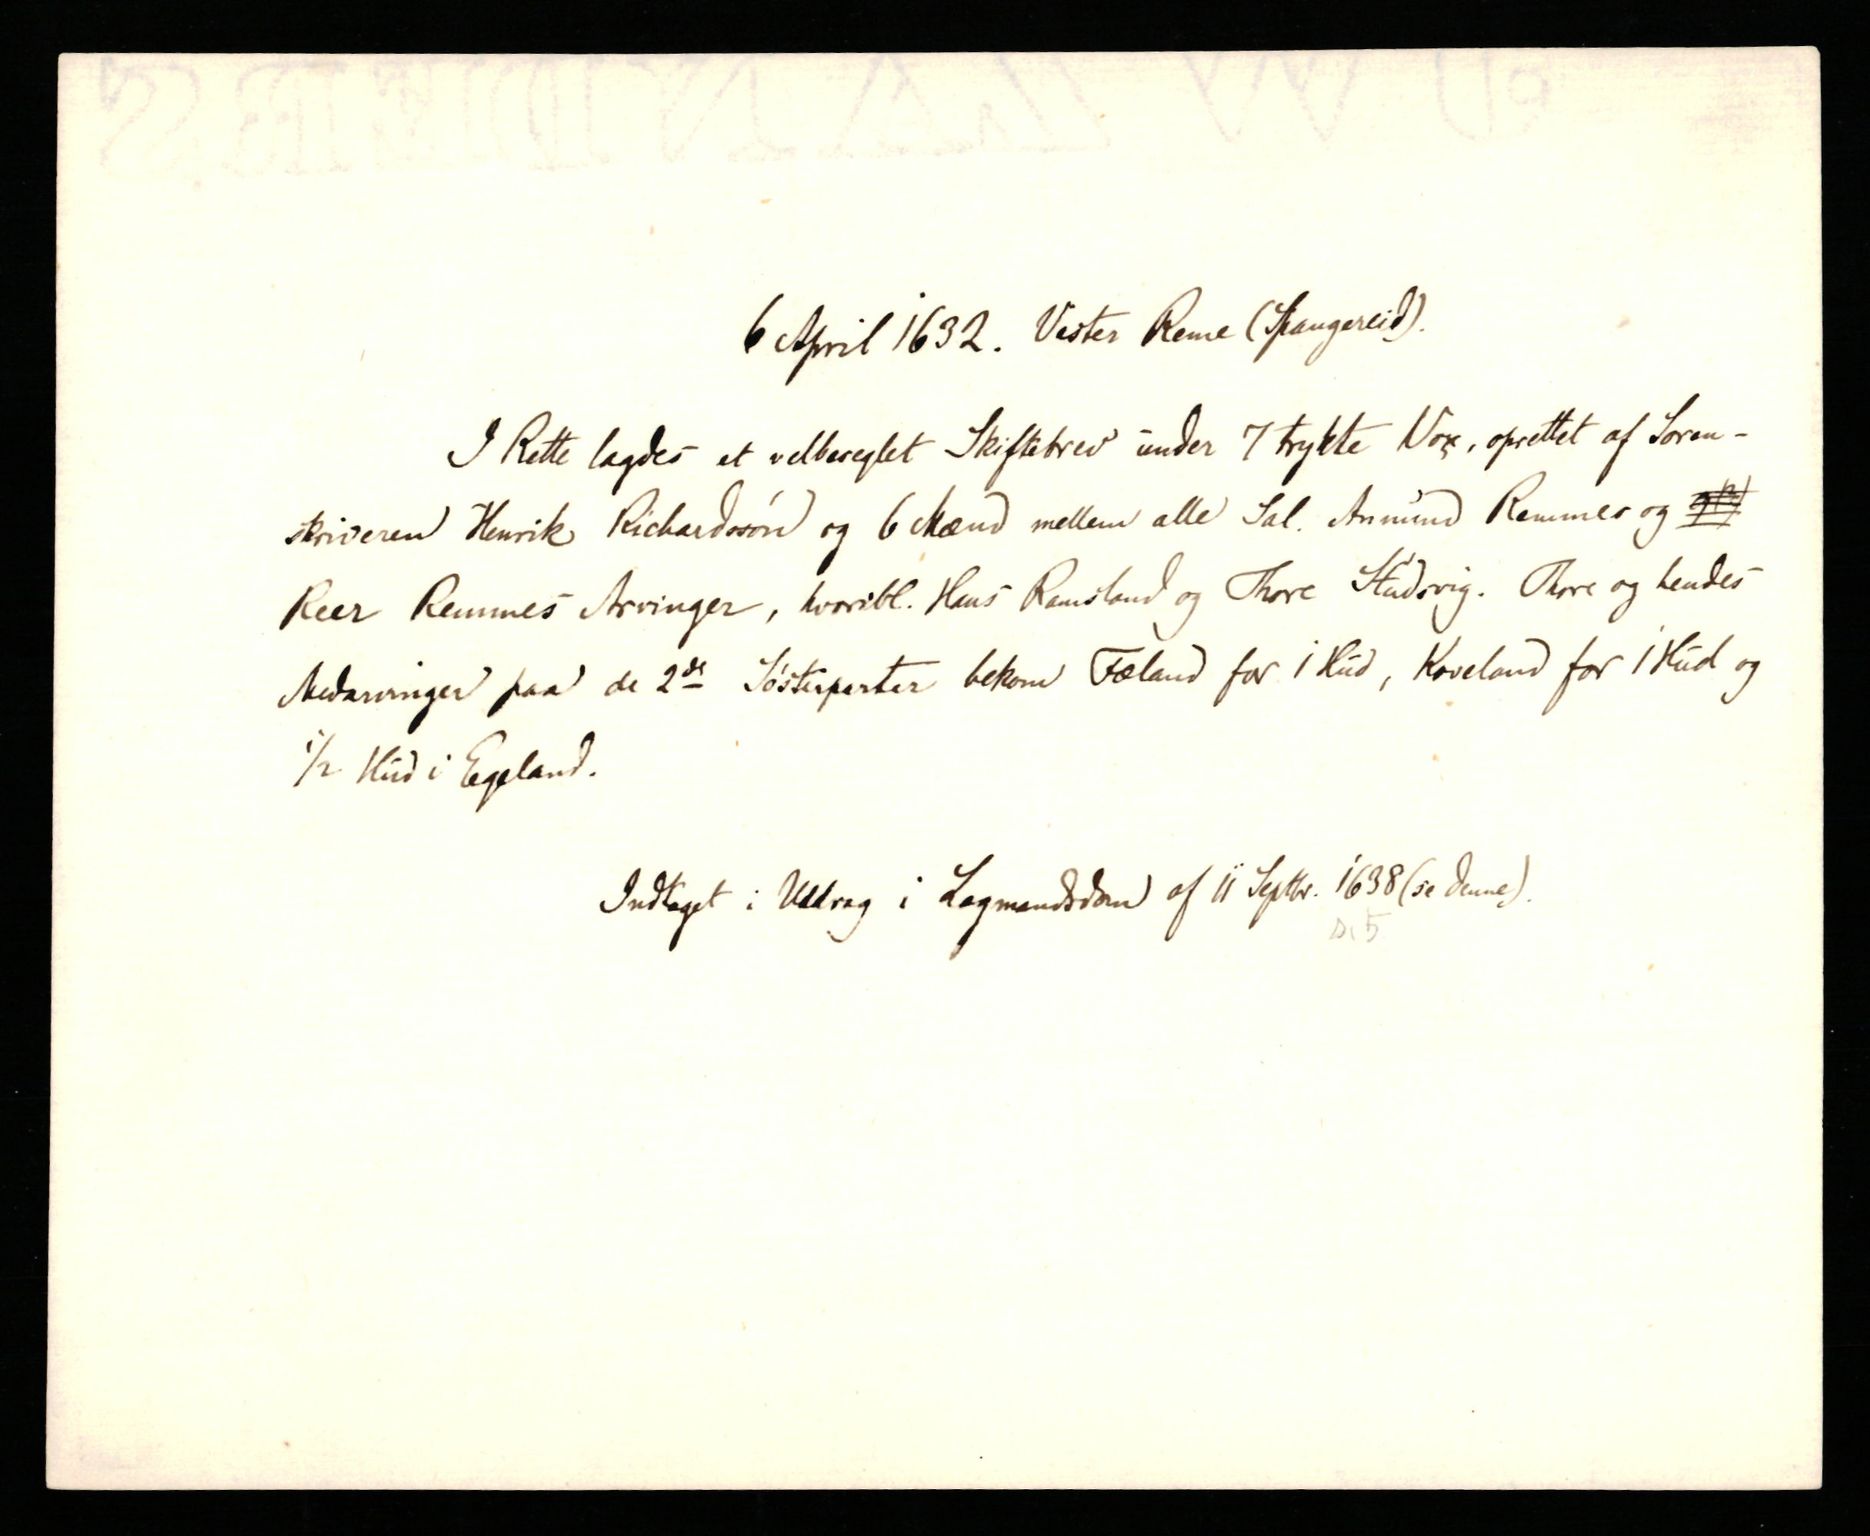 6 April 1632. Vester Reme (Spangereid).
I Rette lagdes et velbeseglet Skiftebrev under 7 trykte Vox, oprettet af Soren-
skriveren Henrik Richardssøn og 6 Mænd mellem alle Sal. Anund Remmes og
Reer Remmes Arvinger, hvoribl. Hans Ramsland og Thore Studsvig. Thore og hendes
Medarvinger paa de 2de Søsterparter bekom Fæland for 1 Hud, Koveland for 1 Hud og
1/2 Hud i Egeland.
Indtaget i Uddrag i Lagmandsdom af 11 Septbr. 1638 (se denne).